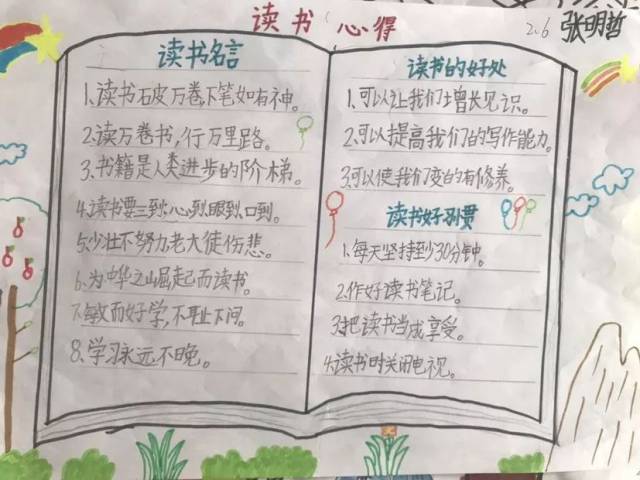 读书心得
2.6 张明哲
读书名言
1、读书破万卷,下笔如有神。
2、读万卷书,行万里路。
3、书籍是人类进步的阶梯。
4、读书要三到:心到、眼到、口到。
5、少壮不努力老大徒伤悲。
6、为中华之崛起而读书。
7、敏而好学,不耻下问。
8、学习永远不晚。
读书的好处
1、可以让我们增长见识。
2、可以提高我们的写作能力。
3、可以使我们变的有修养。
读书好习惯
1、每天坚持至少30分钟。
2、作好读书笔记。
3、把读书当成享受。
4、读书时关闭电视。